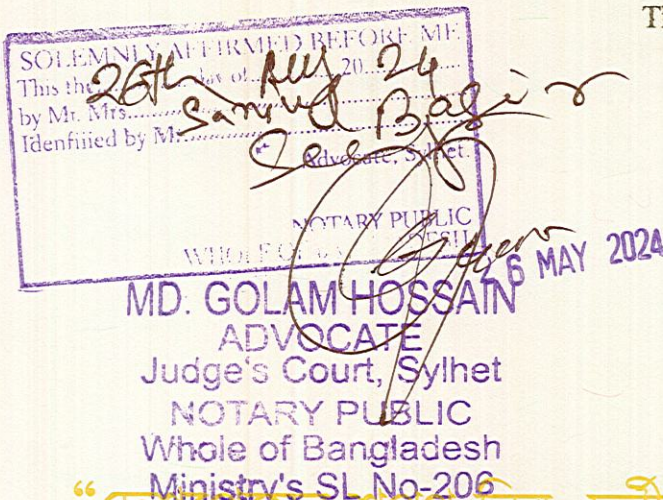 SOLEMNLY AFFIRMED BEFORE ME
This the 26th day of 20 24
by Mr. Mrs. Samiul Basir
Idenfiiied by Mr.
Advocate, Sylhet.
NOTARY PUBLIC
WHOLE OF
26 MAY 2024
MD. GOLAM HOSSAIN
ADVOCATE
Judge's Court, Sylhet
NOTARY PUBLIC
Whole of Bangladesh
Ministry's SL No-206